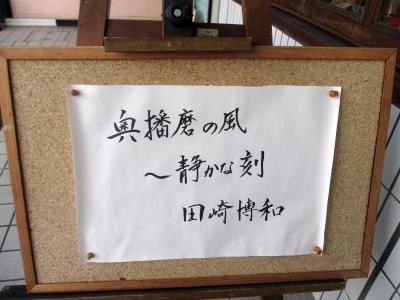 奥播磨の風
～静かな刻
田崎博和